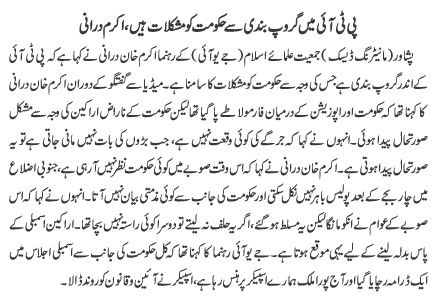 پی ٹی آئی میں گروپ بندی سے حکومت کو مشکلات ہیں، اکرم درانی
پشاور (مانیٹرنگ ڈیسک) جمعیت علمائے اسلام (جے یو آئی) کے رہنما اکرم خان درانی نے کہا ہے کہ پی ٹی آئی
کے اندر گروپ بندی ہے جس کی وجہ سے حکومت کو مشکلات کا سامنا ہے۔ میڈیا سے گفتگو کے دوران اکرم خان درانی
کا کہنا تھا کہ حکومت اور اپوزیشن کے درمیان فارمولا طے پا گیا تھا لیکن حکومت کے ناراض اراکین کی وجہ سے مشکل
صورتحال پیدا ہوئی۔ انہوں نے کہا کہ جرگے کی کوئی وقعت نہیں ہے، جب بڑوں کی بات نہیں مانی جاتی ہے تو یہ
صورتحال پیدا ہوتی ہے۔ اکرم خان درانی نے کہا کہ اس وقت صوبے میں کوئی حکومت نظر نہیں آ رہی ہے، جنوبی اضلاع
میں چار بجے کے بعد پولیس باہر نہیں نکل سکتی اور حکومت کی جانب سے کوئی مذمتی بیان نہیں آتا۔ انہوں نے کہا کہ اس
صوبے کے عوام نے انکو مانگا لیکن یہ مسلط ہو گئے، اگر یہ حلف نہ لیتے تو دوسرا کوئی راستہ نہیں بچا تھا۔ اراکین اسمبلی کے
پاس بدلہ لینے کے لیے یہی موقع ہوتا ہے۔ جے یو آئی رہنما کا کہنا تھا کہ کل حکومت کی جانب سے اسمبلی اجلاس میں
ایک ڈرامہ رچایا گیا اور آج پورا ملک ہمارے اسپیکر پر ہنس رہا ہے، اسپیکر نے آئین و قانون کو روند ڈالا۔